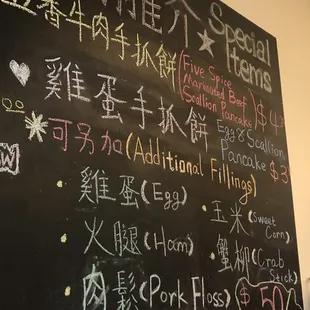 推介 ★ Special Items
五香牛肉手抓餅
(Five Spice Marinated Beef Scallion Pancake) $4
雞蛋手抓餅
Egg & Scallion Pancake $3
可另加 (Additional Fillings)
雞蛋 (Egg)
玉米 (Sweet Corn)
火腿 (Ham)
蟹柳 (Crab Stick)
肉鬆 (Pork Floss)